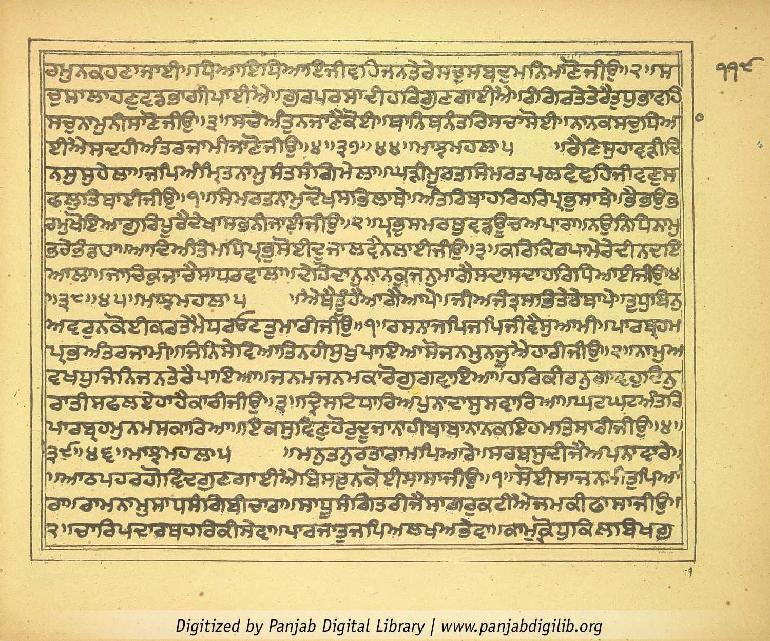 ੧੧੯
ਹਮੁਨਕਹਣਾਜਾਈ॥ਧਿਆਇਧਿਆਇਜੀਵਹਿਜਨਤੇਰੇਸਚੁਸਬਦੁਮਨਿਮਾਣੋਜੀਉ॥੨॥ਸ
ਚੁਸਾਲਾਹਣੁਵਡਭਾਗੀਪਾਈਐ॥ਗੁਰਪਰਸਾਦੀਹਰਿਗੁਣਗਾਈਐ॥ਰੰਗਿਰਤੇਤੇਰੈਤੁਧੁਭਾਵਹਿ
ਸਚੁਨਾਮੁਨੀਸਾਣੋਜੀਉ॥੩॥ਸਚੇਅੰਤੁਨਜਾਣੈਕੋਈ॥ਥਾਨਿਥਨੰਤਰਿਸਚਾਸੋਈ॥ਨਾਨਕਸਚੁਧਿਆ
ਈਐਸਦਹੀਅੰਤਰਜਾਮੀਜਾਣੋਜੀਉ॥੪॥੩੭॥੪੪॥ਮਾਝਮਹਲਾ੫ ॥ਰੈਣਿਸੁਹਾਵੜੀਦਿ
ਨਸੁਸੁਹੇਲਾ॥ਜਪਿਅੰਮ੍ਰਿਤਨਾਮੁਸੰਤਸੰਗਿਮੇਲਾ॥ਘੜੀਮੂਰਤਸਿਮਰਤਪਲਵੰਞਹਿਜੀਵਣੁਸ
ਫਲੁਤਿਥਾਈਜੀਉ॥੧॥ਸਿਮਰਤਨਾਮੁਦੋਖਸਭਿਲਾਥੇ॥ਅੰਤਰਿਬਾਹਰਿਹਰਿਪ੍ਰਭੁਸਾਥੇ॥ਭੈਭਉਭ
ਰਮੁਖੋਇਆਗੁਰਿਪੂਰੈਦੇਖਾਸਭਨੀਜਾਈਜੀਉ॥੨॥ਪ੍ਰਭੁਸਮਰਥੁਵਡਊਚਅਪਾਰਾ॥ਨਉਨਿਧਿਨਾਮੁ
ਭਰੇਭੰਡਾਰਾ॥ਆਦਿਅੰਤਿਮਧਿਪ੍ਰਭੁਸੋਈਦੂਜਾਲਵੈਨਲਾਈਜੀਉ॥੩॥ਕਰਿਕਿਰਪਾਮੇਰੇਦੀਨਦਇ
ਆਲਾ॥ਜਾਚਿਕੁਜਾਚੈਸਾਧਰਵਾਲਾ॥ਦੇਹਿਦਾਨੁਨਾਨਕੁਜਨੁਮਾਗੈਸਦਾਸਦਾਹਰਿਧਿਆਈਜੀਉ॥੪
॥੩੮॥੪੫॥ਮਾਝਮਹਲਾ੫ ॥ਐਥੈਤੂੰਹੈਆਗੈਆਪੇ॥ਜੀਅਜੰਤ੍ਰਸਭਿਤੇਰੇਥਾਪੇ॥ਤੁਧੁਬਿਨੁ
ਅਵਰੁਨਕੋਈਕਰਤੇਮੈਧਰਓਟਤੁਮਾਰੀਜੀਉ॥੧॥ਰਸਨਾਜਪਿਜਪਿਜੀਵੈਸੁਆਮੀ॥ਪਾਰਬ੍ਰਹਮ
ਪ੍ਰਭਅੰਤਰਜਾਮੀ॥ਜਿਨਿਸੇਵਿਆਤਿਨਹੀਸੁਖੁਪਾਇਆਸੋਜਨਮੁਨਜੂਐਹਾਰੀਜੀਉ॥੨॥ਨਾਮੁਅ
ਵਖਧੁਜਿਨਿਜਨਤੇਰੈਪਾਇਆ॥ਜਨਮਜਨਮਕਾਰੋਗੁਗਵਾਇਆ॥ਹਰਿਕੀਰਤਨੁਗਾਵਹੁਦਿਨੁ
ਰਾਤੀਸਫਲਏਹਾਹੈਕਾਰੀਜੀਉ॥੩॥ਦ੍ਰਿਸਟਿਧਾਰਿਅਪਨਾਦਾਸੁਸਵਾਰਿਆ॥ਘਟਘਟਅੰਤਰਿ
ਪਾਰਬ੍ਰਹਮੁਨਮਸਕਾਰਿਆ॥ਇਕਸੁਵਿਣੁਹੋਰੁਦੂਜਾਨਾਹੀਬਾਬਾਨਾਨਕਇਹਮਤਿਸਾਰੀਜੀਉ॥੪॥
੩੯॥੪੬॥ਮਾਝਮਹਲਾ੫ ॥ਮਨੁਤਨੁਰਤਾਰਾਮਪਿਆਰੇ॥ਸਰਬਸੁਦੀਜੈਅਪਨਾਵਾਰੇ॥
॥ਆਠਪਹਰਗੋਵਿੰਦਗੁਣਗਾਈਐਬਿਸਰੁਨਕੋਈਸਾਸਾਜੀਉ॥੧॥ਸੋਈਸਾਜਨਮੀਤੁਪਿਆ
ਰਾ॥ਰਾਮਨਾਮੁਸਾਧਸੰਗਿਬੀਚਾਰਾ॥ਸਾਧੂਸੰਗਿਤਰੀਜੈਸਾਗਰੁਕਟੀਐਜਮਕੀਫਾਸਾਜੀਉ॥
੨॥ਚਾਰਿਪਦਾਰਥਹਰਿਕੀਸੇਵਾ॥ਪਾਰਜਾਤੁਜਪਿਅਲਖਅਭੇਵਾ॥ਕਾਮੁਕ੍ਰੋਧੁਕਿਲਬਿਖਗੁ
Digitized by Panjab Digital Library | www.panjabdigilib.org